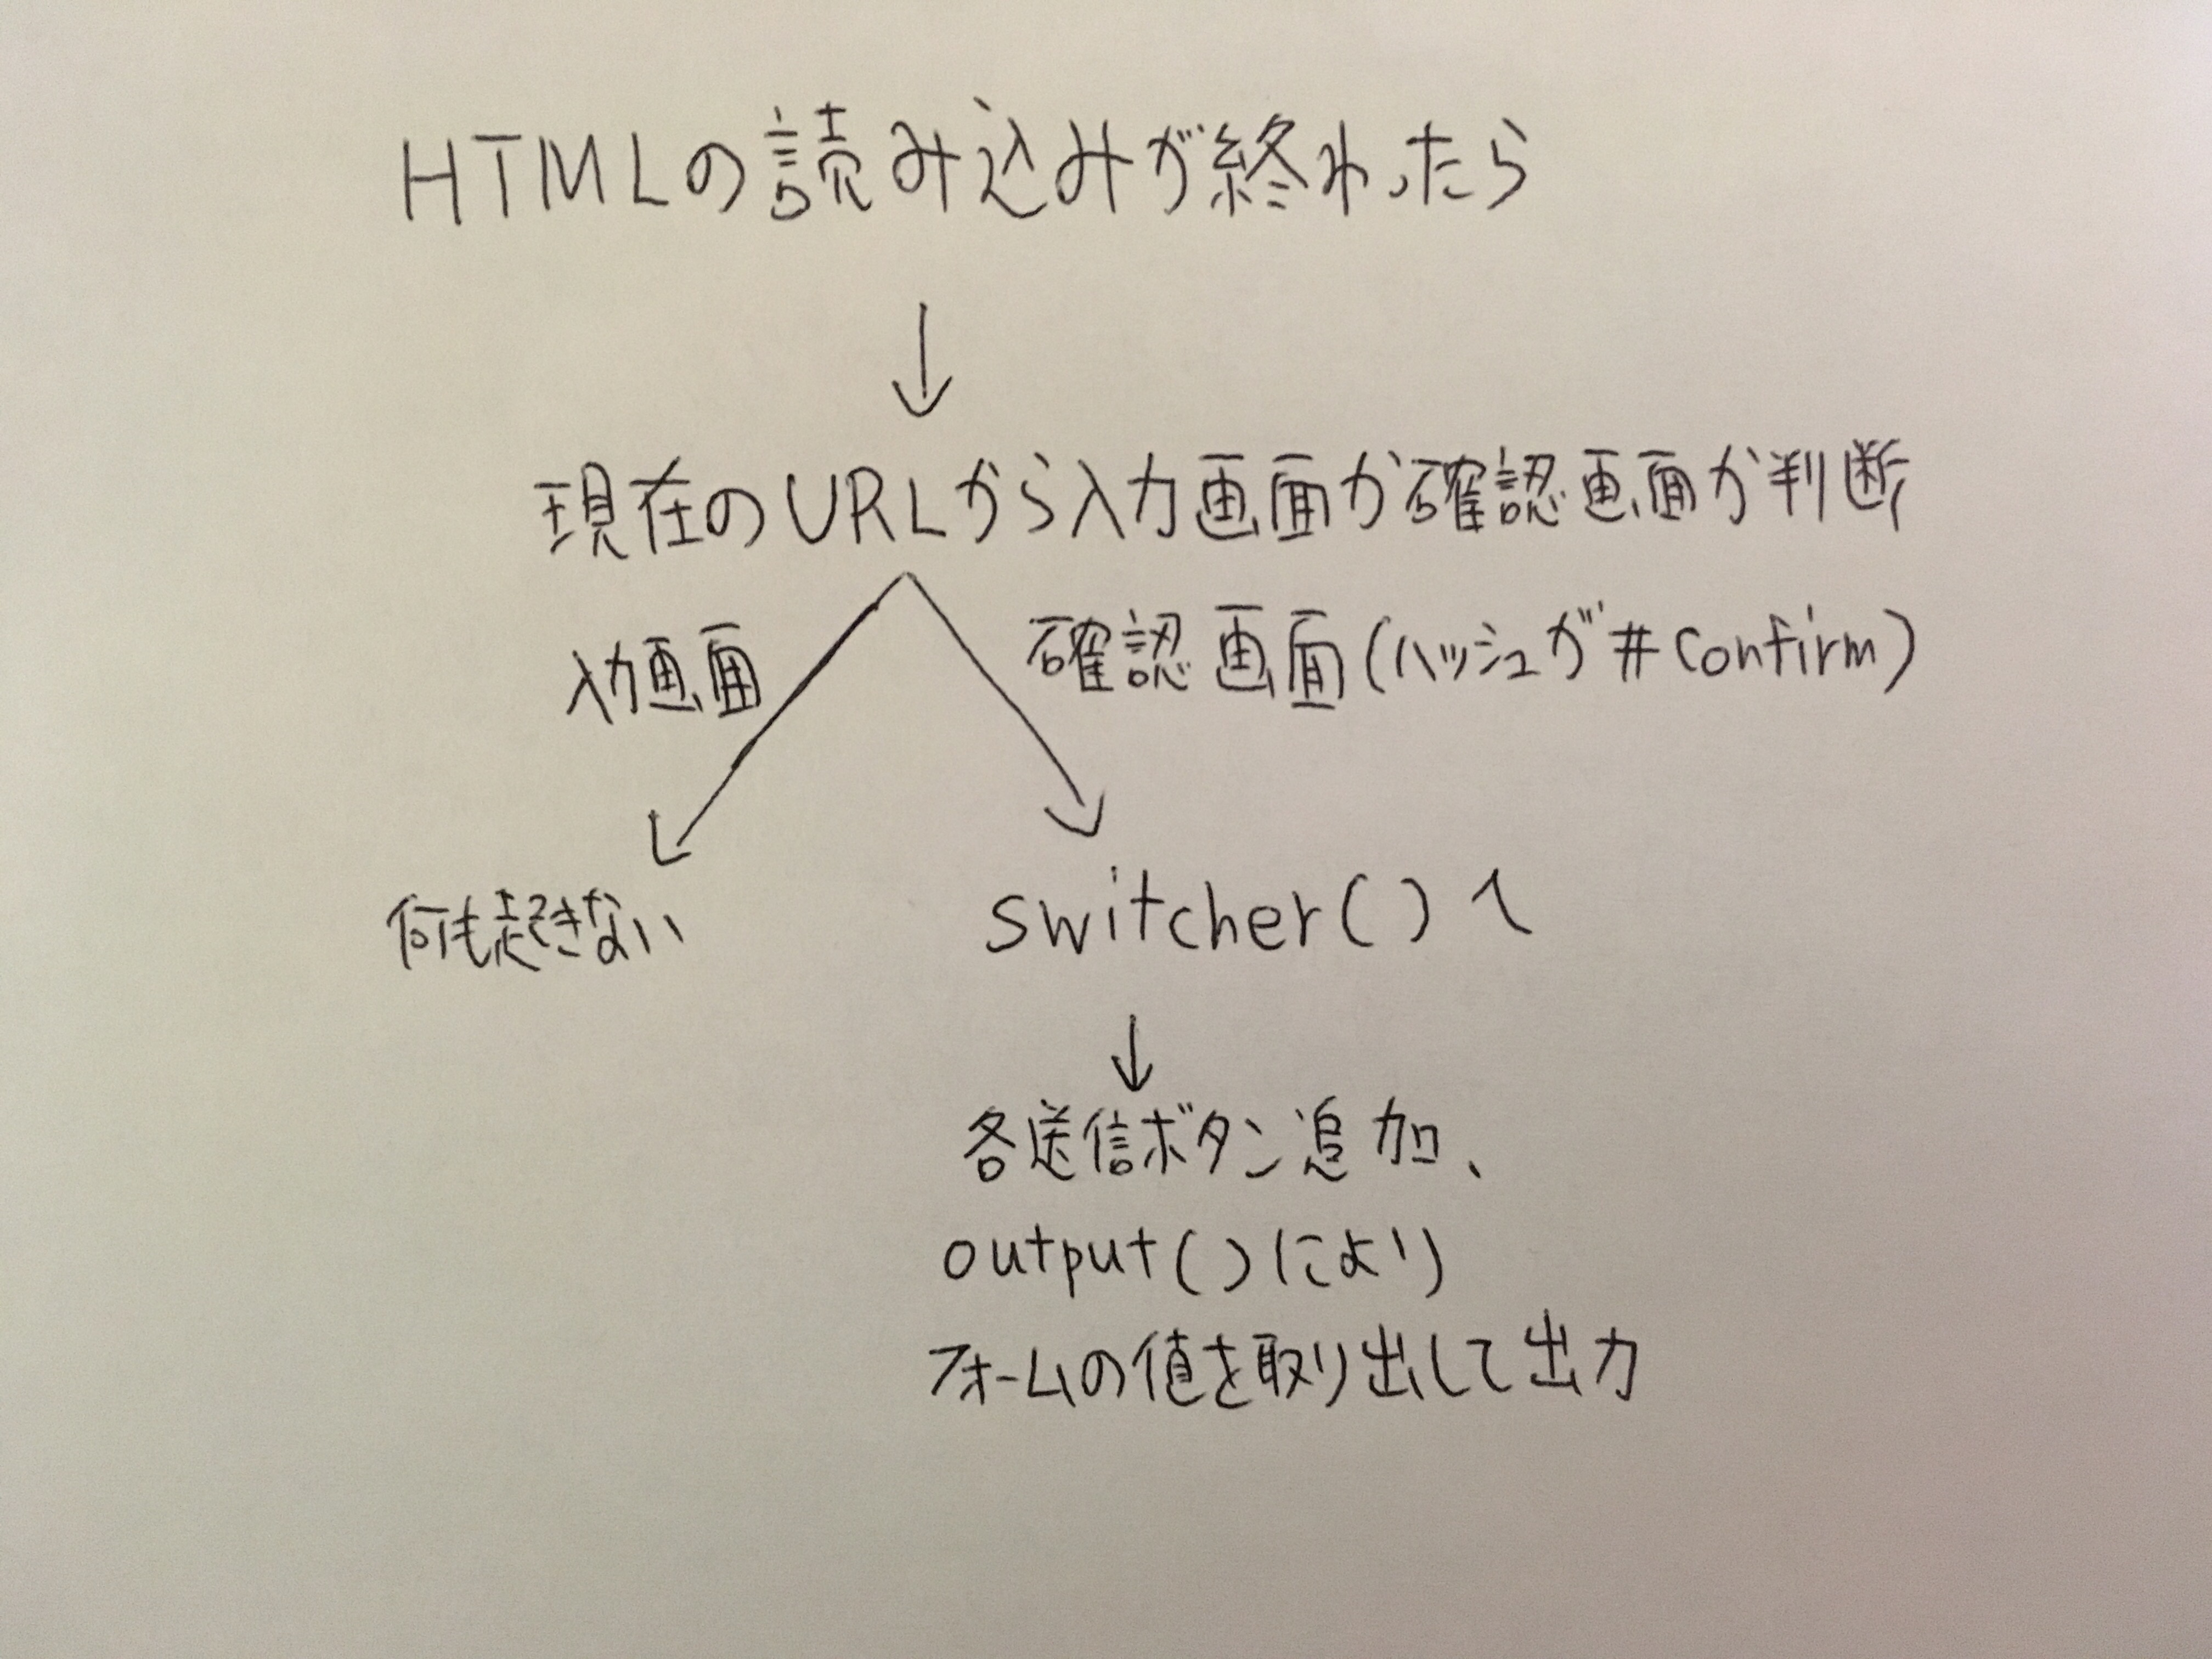 HTMLの読み込みが終わったら
↓
現在のURLから入力画面か確認画面か判断
入力画面
確認画面(ハッシュが#confirm)
何も起きない
switcher()へ
↓
各送信ボタン追加、
output()により
フォームの値を取り出して出力